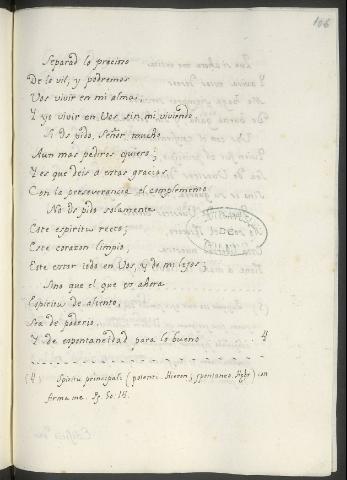 106
Separad lo precioso
De lo vil, y podremos
Vos vivir en mi alma,
Y yo vivir en Vos sin mi viviendo.
Si os pido, Señor, mucho,
Aun mas pediros quiero;
Y es que deis a estas gracias
Con la perseverancia el complemento
No os pido solamente
Este espiritu recto,
Este corazon limpio,
Este estar todo en Vos, y de mi lejos;
Sino que el que es ahora
Espiritu de aliento,
Sea de poderio,
Y de espontaneidad para lo bueno 4
(4) Spiritu principali (potenti. Hieron; spontaneo. Hebr.) con
firma me. Ps. 50. 14.